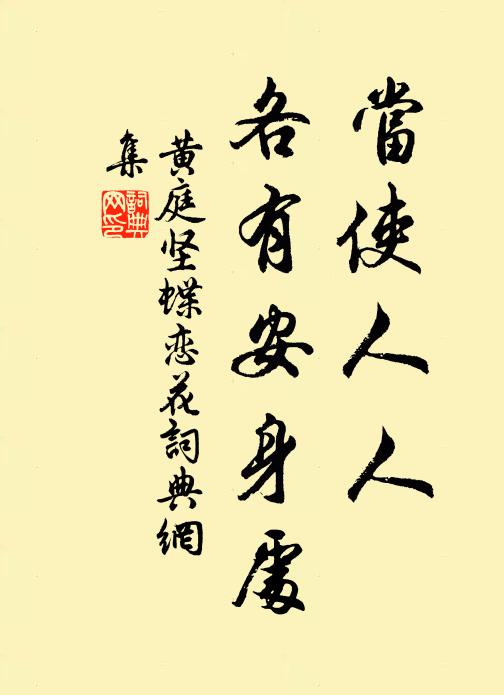 當使人人
各有安身處
黄庭坚蝶恋花詞典網
集
詞典網印